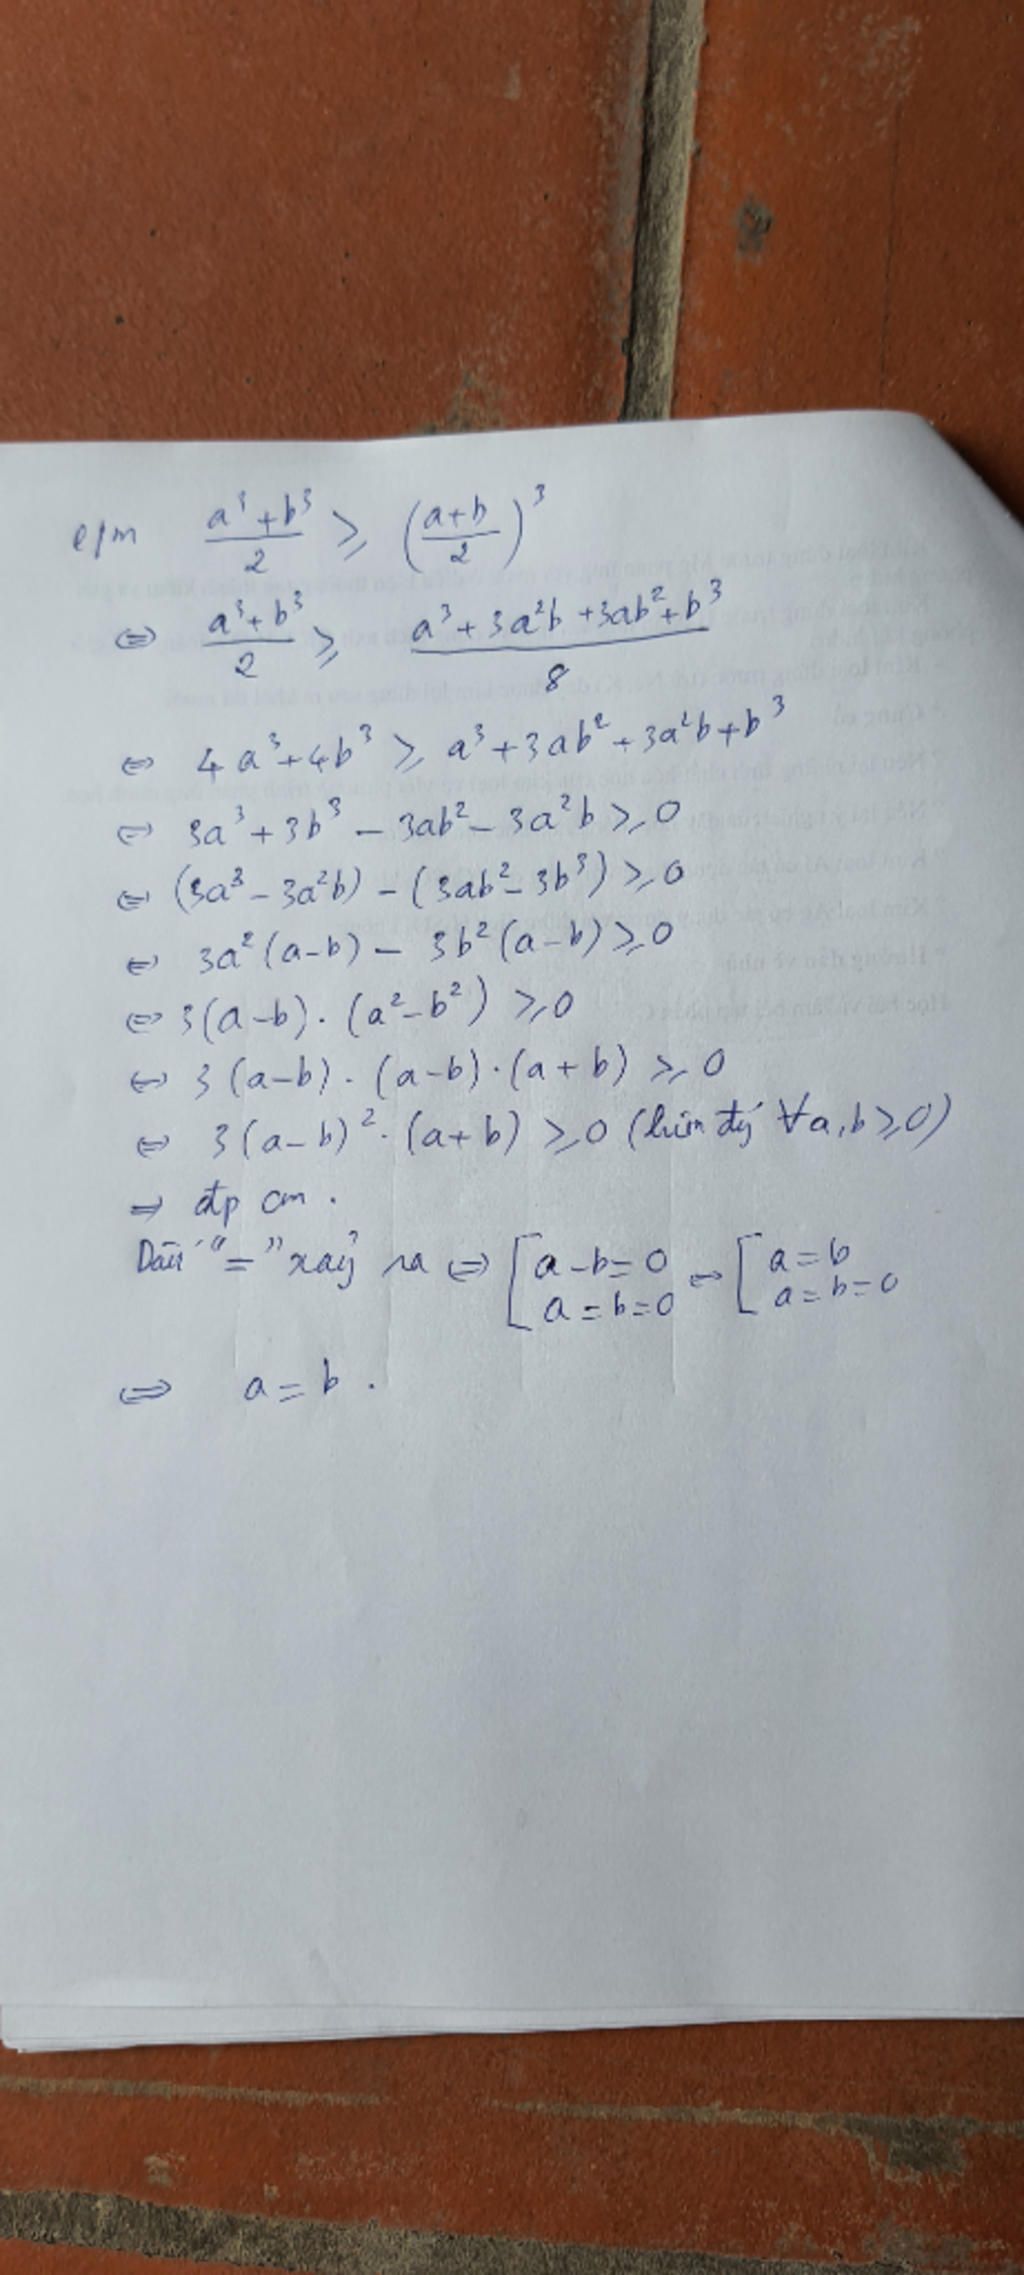 c/m (a³+b³)/2 ≥ ((a+b)/2)³
⇔ (a³+b³)/2 ≥ (a³+3a²b+3ab²+b³)/8
⇔ 4a³+4b³ ≥ a³+3ab²+3a²b+b³
⇔ 3a³+3b³-3ab²-3a²b ≥ 0
⇔ (3a³-3a²b)-(3ab²-3b³) ≥ 0
⇔ 3a²(a-b)-3b²(a-b) ≥ 0
⇔ 3(a-b).(a²-b²) ≥ 0
⇔ 3(a-b).(a-b).(a+b) ≥ 0
⇔ 3(a-b)².(a+b) ≥ 0 (luôn đý ∀a,b ≥ 0)
⇒ đp cm.
Dấu "=" xảy ra ⇔ [a-b=0 ⇔ [a=b
a=b=0 a=b=0
⇔ a=b.